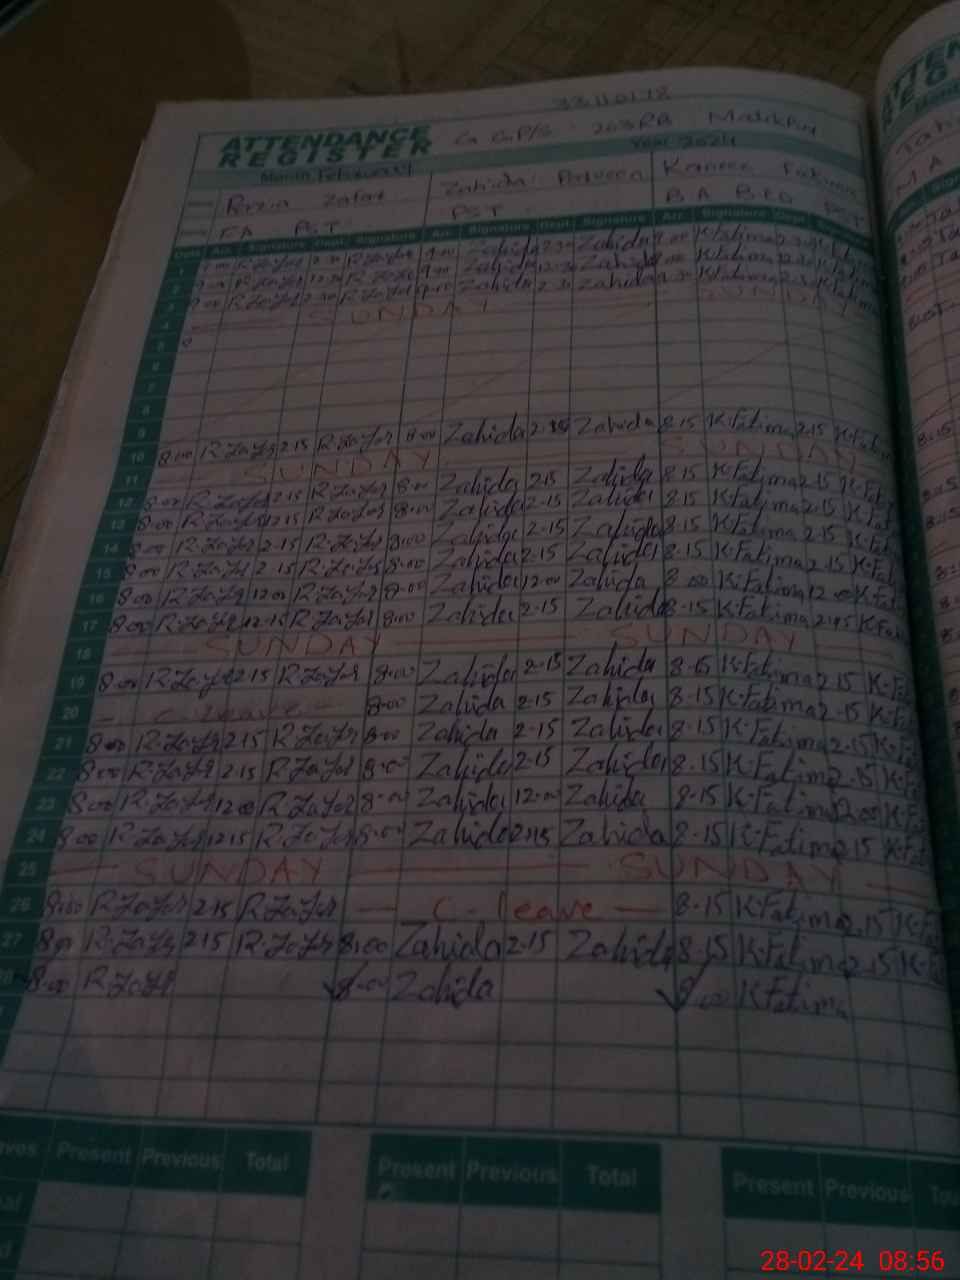 33110178
ATTENDANCE REGISTER G G P/S 203 RB Malikpur
Month February Year 2024
Name Rozia Zafar Zahida Parveen Kaneez Fatima
FA PST PST BA BED PST
Date Arr. Signature Dept. Signature Arr. Signature Dept. Signature Arr. Signature Dept. Signature
1 9.00 R.Zafar 2.30 R.Zafar 9.00 Zahida 2.30 Zahida 9.00 K.Fatima 2.30 K.Fatima
2 R.Zafar 12.30 R.Zafar 9.00 Zahida 12.30 Zahida K.Fatima 12.30 K.Fatima
3 9.00 R.Zafar 2.30 R.Zafar 9.00 Zahida 2.30 Zahida K.Fatima 2.30 K.Fatima
4 SUNDAY SUNDAY
5
6
7
8
9
10 8.00 R.Zafar 2.15 R.Zafar 8.00 Zahida 2.15 Zahida 8.15 K.Fatima 2.15 K.Fati
11 SUNDAY SUNDAY
12 8.00 R.Zafar 2.15 R.Zafar 8.00 Zahida 2.15 Zahida 8.15 K.Fatima 2.15 K.Fati
13 8.00 R.Zafar 2.15 R.Zafar 8.00 Zahida 2.15 Zahida 8.15 K.Fatima 2.15 K.Fati
14 8.00 R.Zafar 2.15 R.Zafar 8.00 Zahida 2.15 Zahida 8.15 K.Fatima 2.15 K.Fati
15 8.00 R.Zafar 2.15 R.Zafar 8.00 Zahida 2.15 Zahida 8.15 K.Fatima 2.15 K.Fati
16 8.00 R.Zafar 12.00 R.Zafar 8.00 Zahida 12.00 Zahida 8.00 K.Fatima 12.00 K.Fati
17 8.00 R.Zafar 2.15 R.Zafar 8.00 Zahida 2.15 Zahida 8.15 K.Fatima 2.15 K.Fati
18 SUNDAY SUNDAY
19 8.00 R.Zafar 2.15 R.Zafar 8.00 Zahida 2.15 Zahida 8.15 K.Fatima 2.15 K.Fa
20 C. leave 8.00 Zahida 2.15 Zahida 8.15 K.Fatima 2.15 K.Fa
21 8.00 R.Zafar 2.15 R.Zafar 8.00 Zahida 2.15 Zahida 8.15 K.Fatima 2.15 K.Fa
22 8.00 R.Zafar 2.15 R.Zafar 8.00 Zahida 2.15 Zahida 8.15 K.Fatima 2.15 K.Fa
23 8.00 R.Zafar 12.00 R.Zafar 8.00 Zahida 12.00 Zahida 8.15 K.Fatima 12.00 K.Fa
24 8.00 R.Zafar 2.15 R.Zafar 8.00 Zahida 2.15 Zahida 8.15 K.Fatima 2.15 K.Fat
25 SUNDAY SUNDAY
26 8.00 R.Zafar 2.15 R.Zafar C- leave 8.15 K.Fatima 2.15 K.F
27 8.00 R.Zafar 2.15 R.Zafar 8.00 Zahida 2.15 Zahida 8.15 K.Fatima 2.15 K.F
8.00 R.Zafar 8.00 Zahida K.Fatima
Present Previous Total Present Previous Total Present Previous
28-02-24 08:56